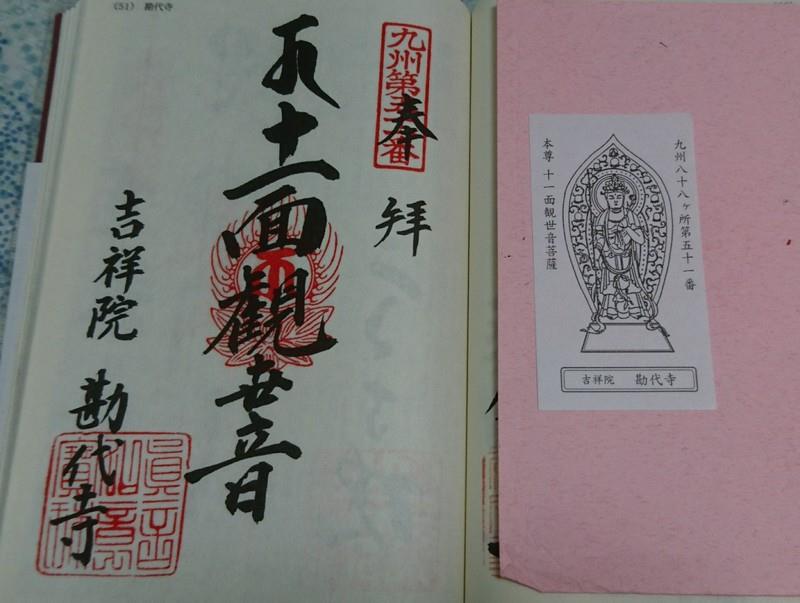 (51) 勘代寺
九州第五十一番
奉拝
十一面観世音
吉祥院 勘代寺
九州八十八ヶ所第五十一番
本尊 十一面観世音菩薩
吉祥院 勘代寺